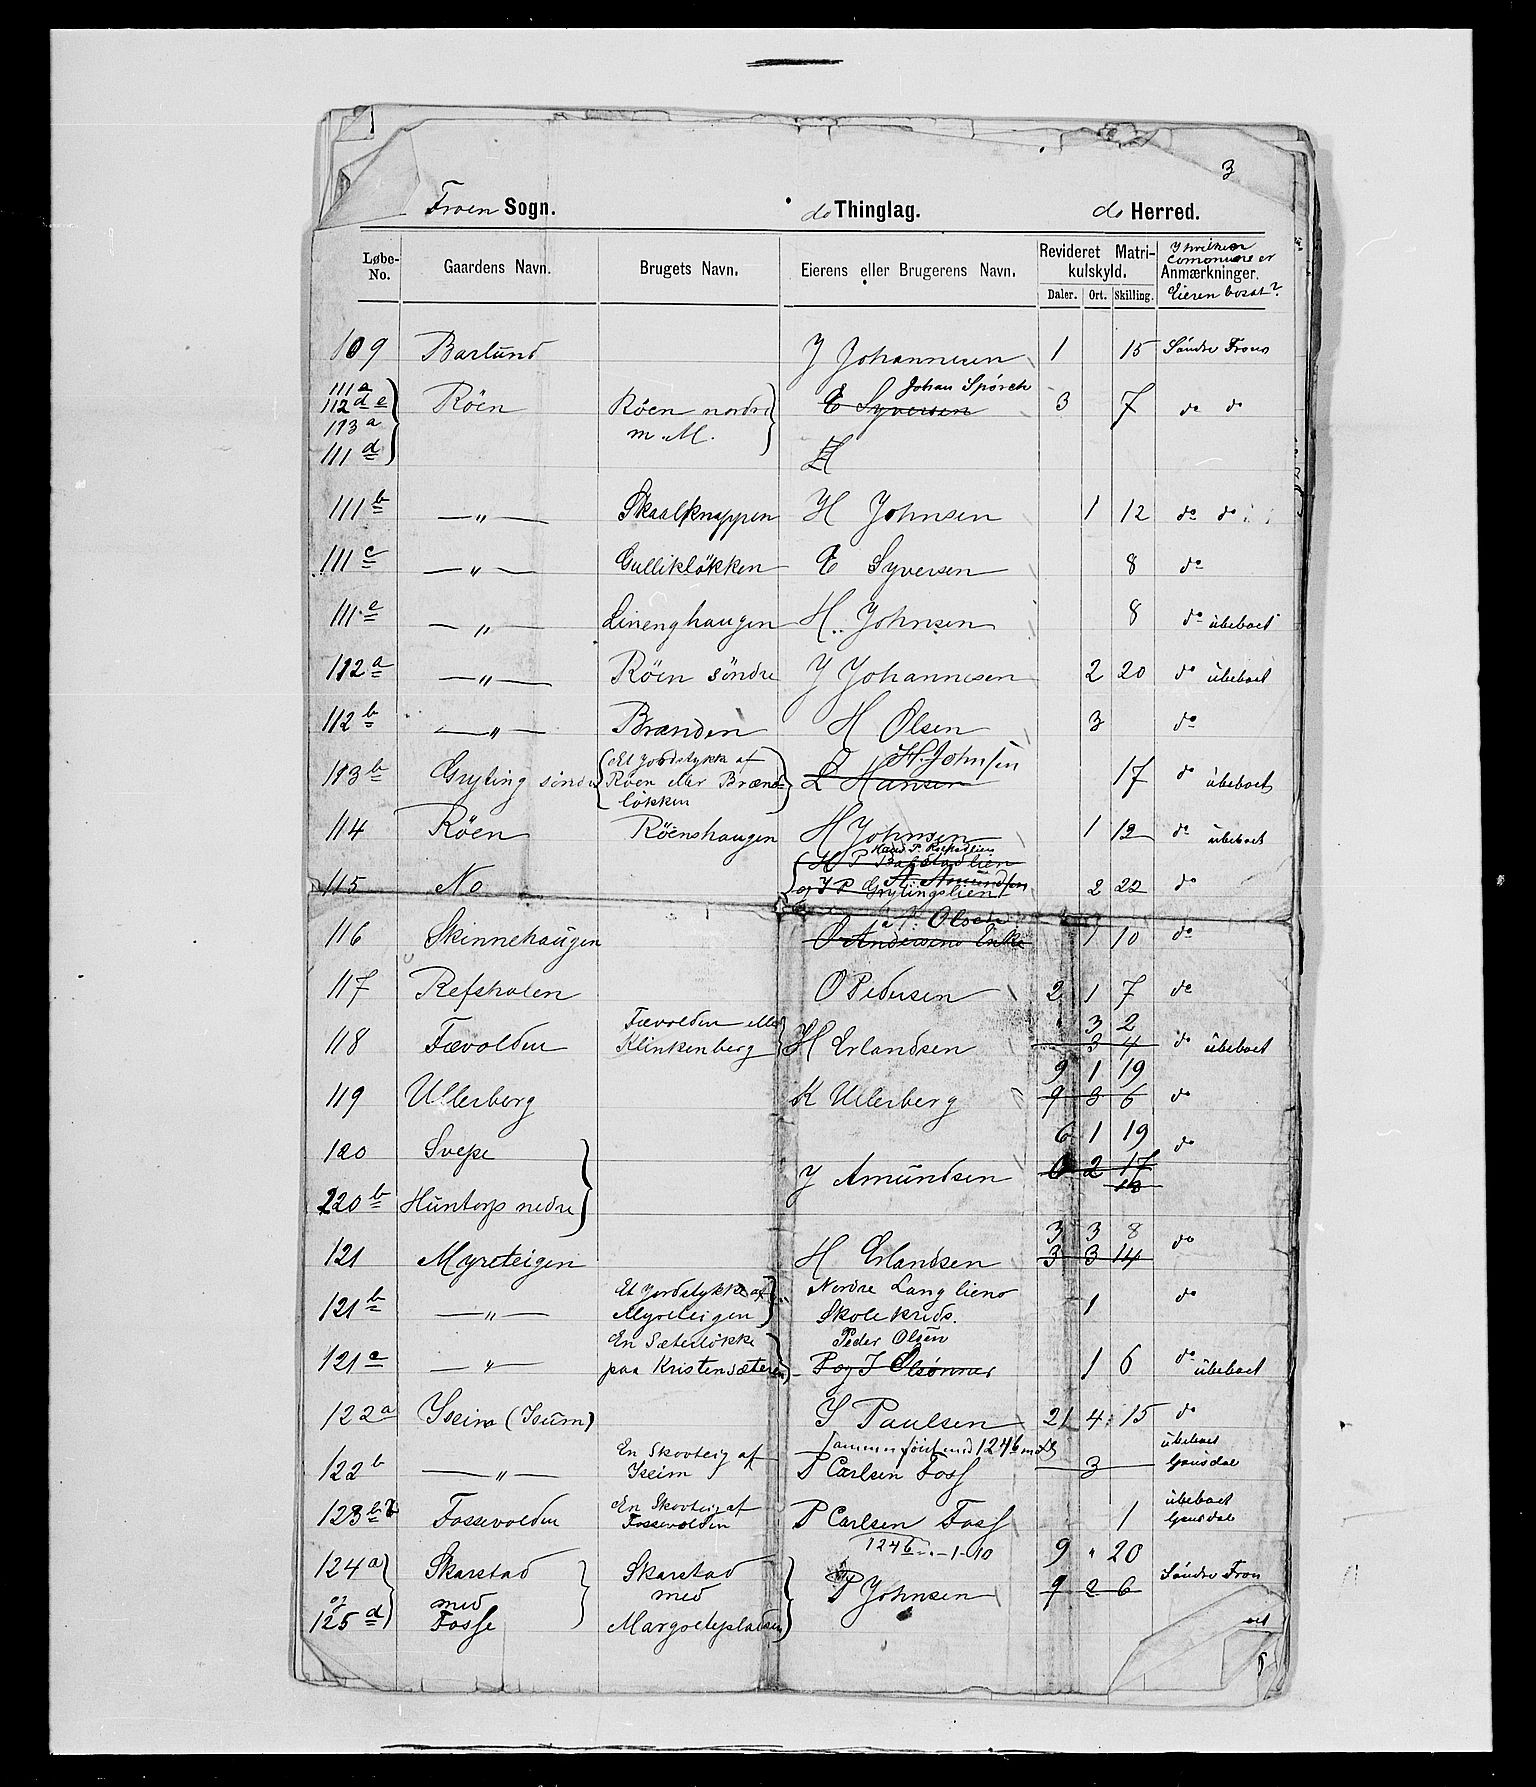 3
Froen Sogn. do Thinglag. do Herred.
Løbe-No. Gaardens Navn. Brugets Navn. Eierens eller Brugerens Navn. Revideret Matrikulskyld. Daler. Ort. Skilling. I hvilken Comonune er Anmærkninger. Eieren bosat?
109 Barlund J Johannesen 1 15 Søndre Frons
111a 112d e 113a 111d Røen Røen nordre m. M. Johan Spørck E Syversen 3 7 do do
H
111b —„— Skaalknappen H Johnsen 1 12 do do
111c —„— Gullikløkken E Syversen 8 do
111e —„— Linenghaugen H. Johnsen 8 do übeboet
112a —„— Røen søndre J Johannesen 2 20 do übeboet
112b —„— Brænden H Olsen 3 do
113b Gryting søndre Et Jordstykke af Røen eller Brændløkken H. Johnsen L Hansen 17 do übeboet
114 Røen Røenshaugen H Johnsen 1 12 do übeboet
115 No H P Bakstadlien A. Amundsen og J P Grytingslien 2 22 do
116 Skinnehaugen A. Olsen O Andersens Enke 1 10 do
117 Refsholen O Pedersen 2 1 7 do
3 2
118 Fævolden Fævolden eller Klinkenberg H Erlandsen 3 4 do übeboet
9 1 19
119 Ullerberg K Ullerberg 9 3 6 do
6 1 19
120 Svepe do
220b Huntorp nedre J Amundsen 6 2 17 18
3 3 8
121 Myreteigen H Erlandsen 3 3 14 do
121b —„— Et Jordstykke af Myreteigen Nordre Langliens Skolekreds. 1 do
121c —„— En Sæterløkke paa Kristensæteren Peder Olsen P og J Olsønner 1 6 do übeboet
122a Iseim (Isum) I Paulsen 21 4 15 do
122b —„— En Skovteig af Iseim Sammenføiet med 124b P Carlsen Foss 3 übeboet Gausdal
123b Fossevolden En Skovteig af Fossevolden P Carlsen Foss 1 übeboet Gausdal
124b „ - 1 - 10 9 „ 20
124a og 125d Skarstad med Fosse Skarstad med Margretepladsen P Johnsen 9 2 6 Søndre Fron